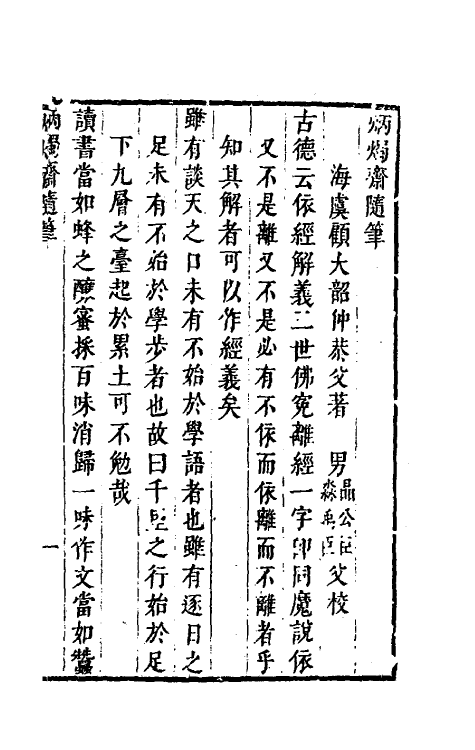 炳燭齋隨筆
海虞顧大韶仲恭父著　男晶公臣淼禹臣父校
古德云依經解義三世佛冤離經一字卽同魔說依
又不是離又不是必有不依而依離而不離者乎
知其解者可以作經義矣
雖有談天之口未有不始於學語者也雖有逐日之
足未有不始於學步者也故曰千里之行始於足
下九層之臺起於累土可不勉哉
讀書當如蜂之釀蜜採百味消歸一味作文當如蠶
炳燭齋隨筆
一